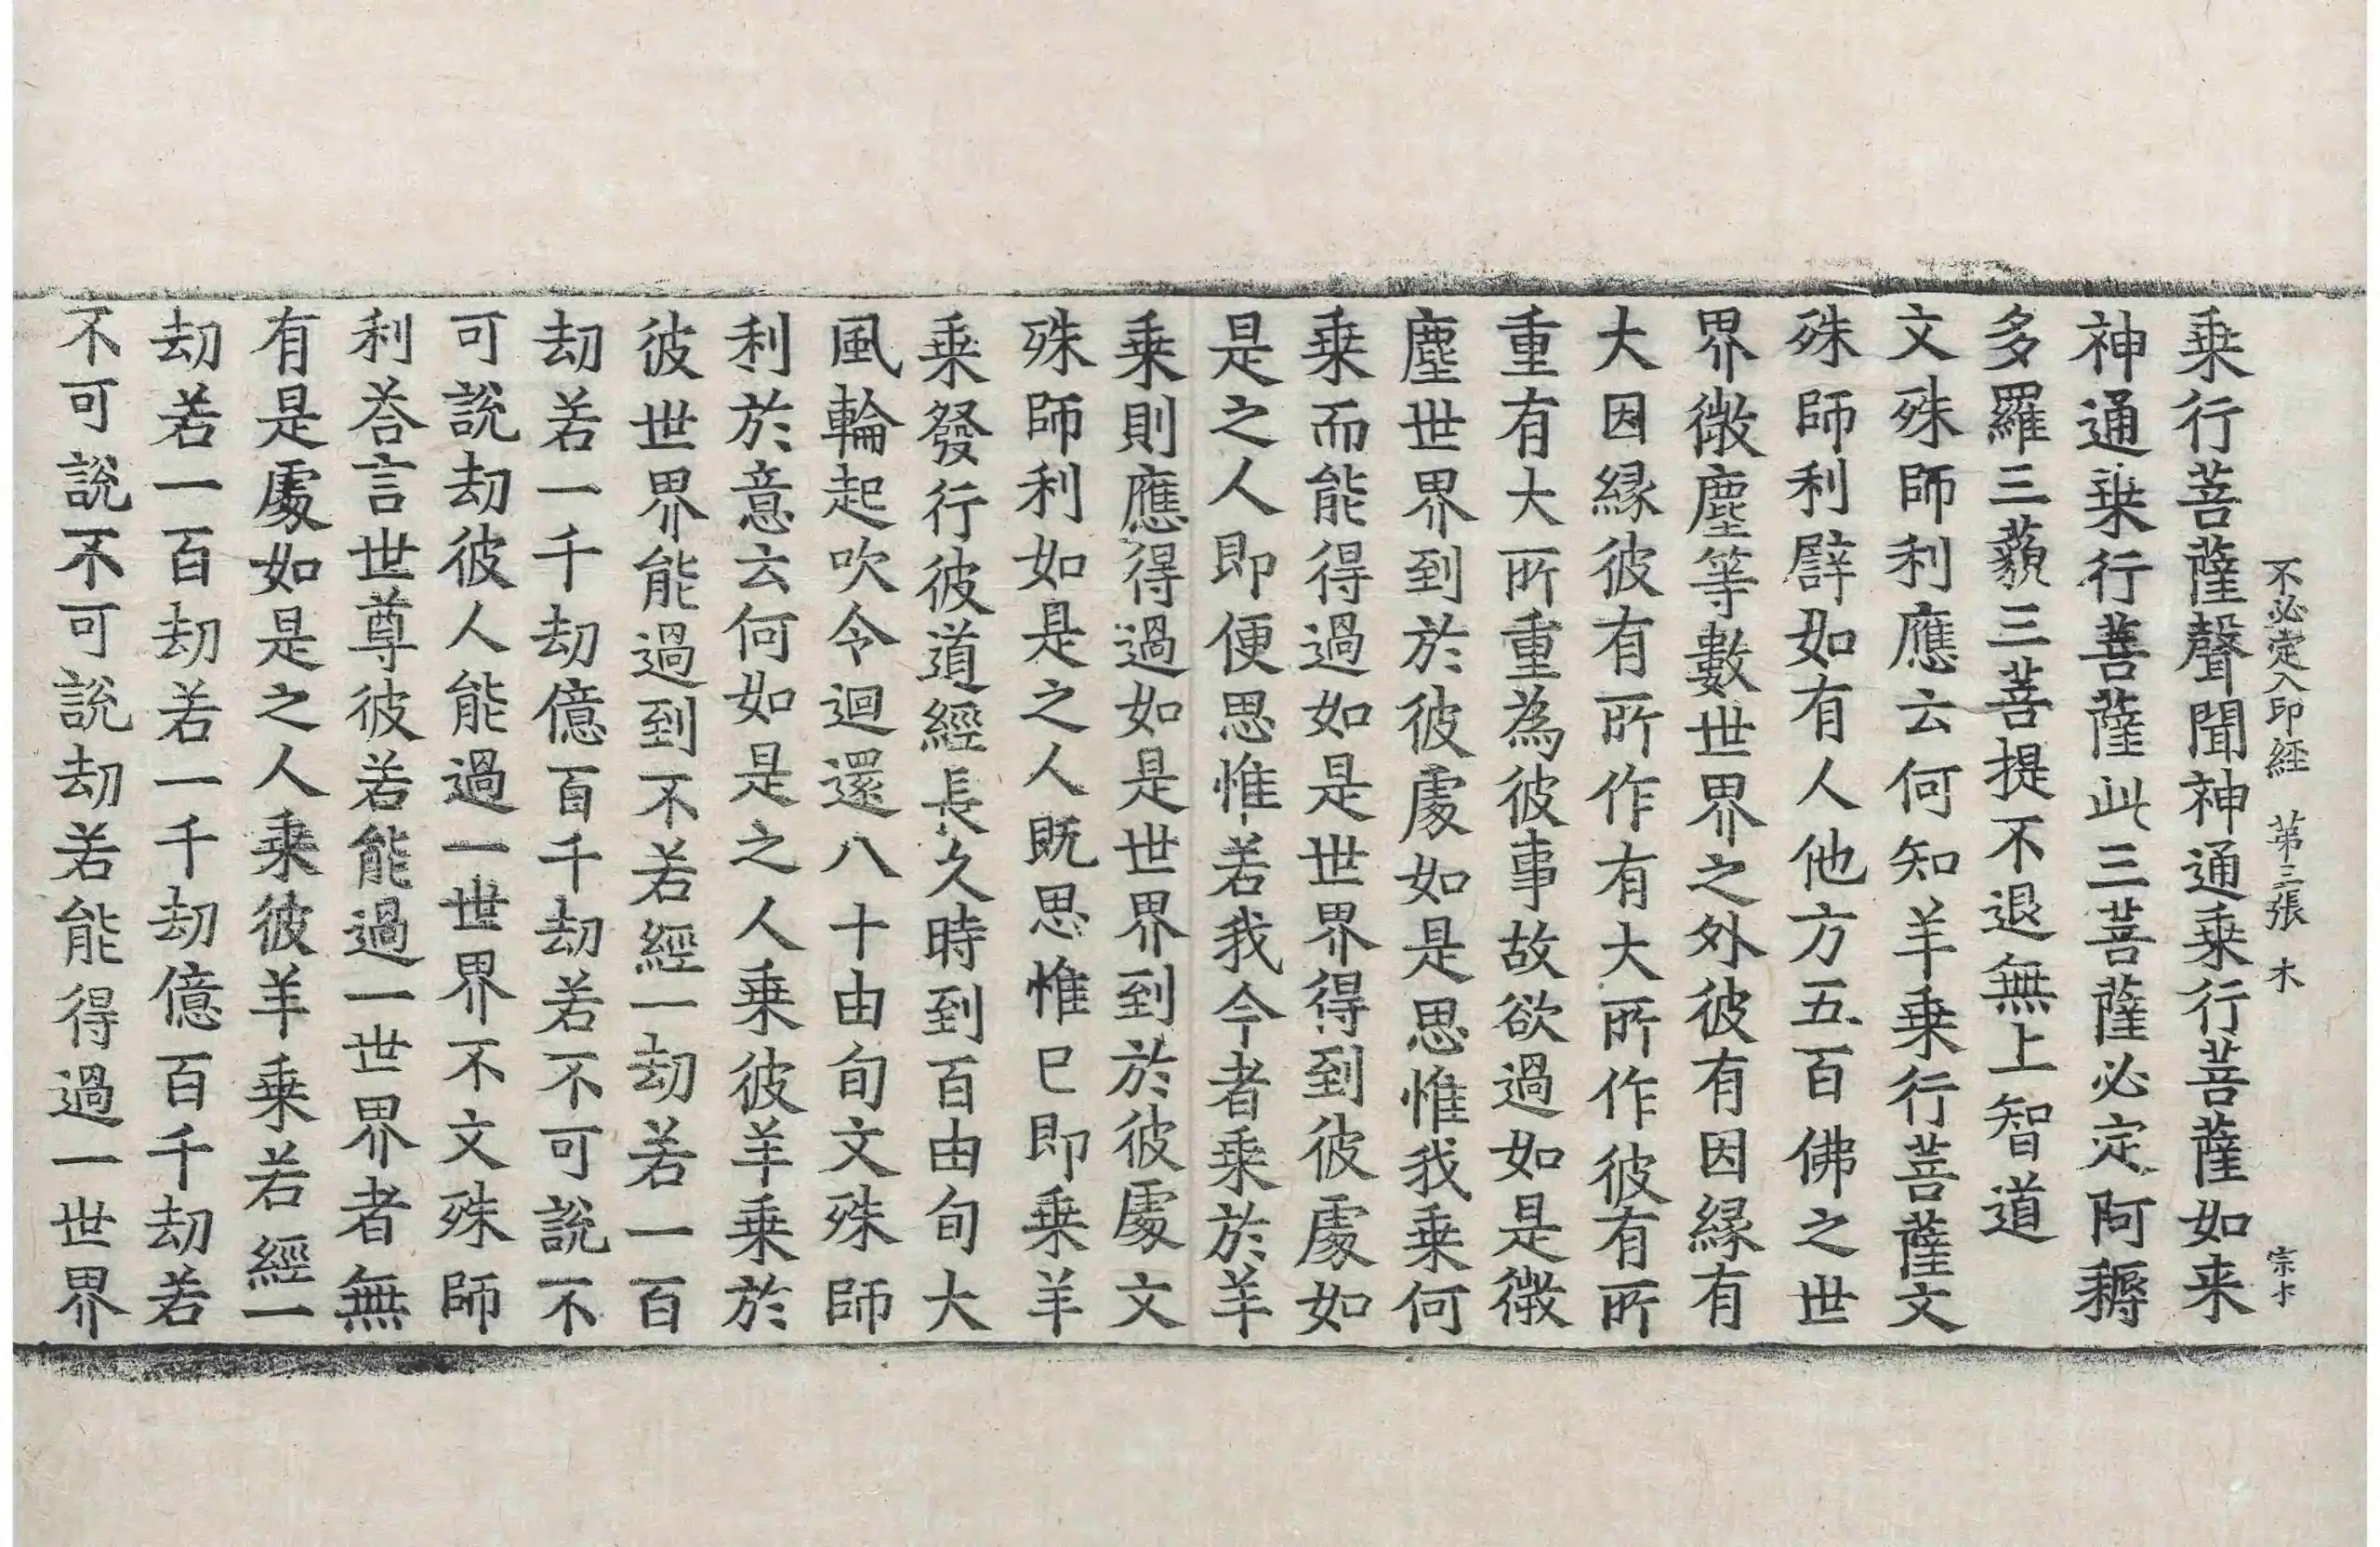 不必定入印經 第三張 木 宗才
乗行菩薩聲聞神通乗行菩薩如来
神通乗行菩薩此三菩薩必定阿耨
多羅三藐三菩提不退無上智道
文殊師利應云何知羊乗行菩薩文
殊師利譬如有人他方五百佛之世
界微塵等數世界之外彼有因縁有
大因縁彼有所作有大所作彼有所
重有大所重為彼事故欲過如是微
塵世界到於彼處如是思惟我乗何
乗而能得過如是世界得到彼處如
是之人即便思惟若我今者乗於羊
乗則應得過如是世界到於彼處文
殊師利如是之人既思惟已即乗羊
乗發行彼道經長久時到百由旬大
風輪起吹令迴還八十由旬文殊師
利於意云何如是之人乗彼羊乗於
彼世界能過到不若經一劫若一百
劫若一千劫億百千劫若不可說不
可說劫彼人能過一世界不文殊師
利荅言世尊彼若能過一世界者無
有是處如是之人乗彼羊乗若經一
劫若一百劫若一千劫億百千劫若
不可說不可說劫若能得過一世界